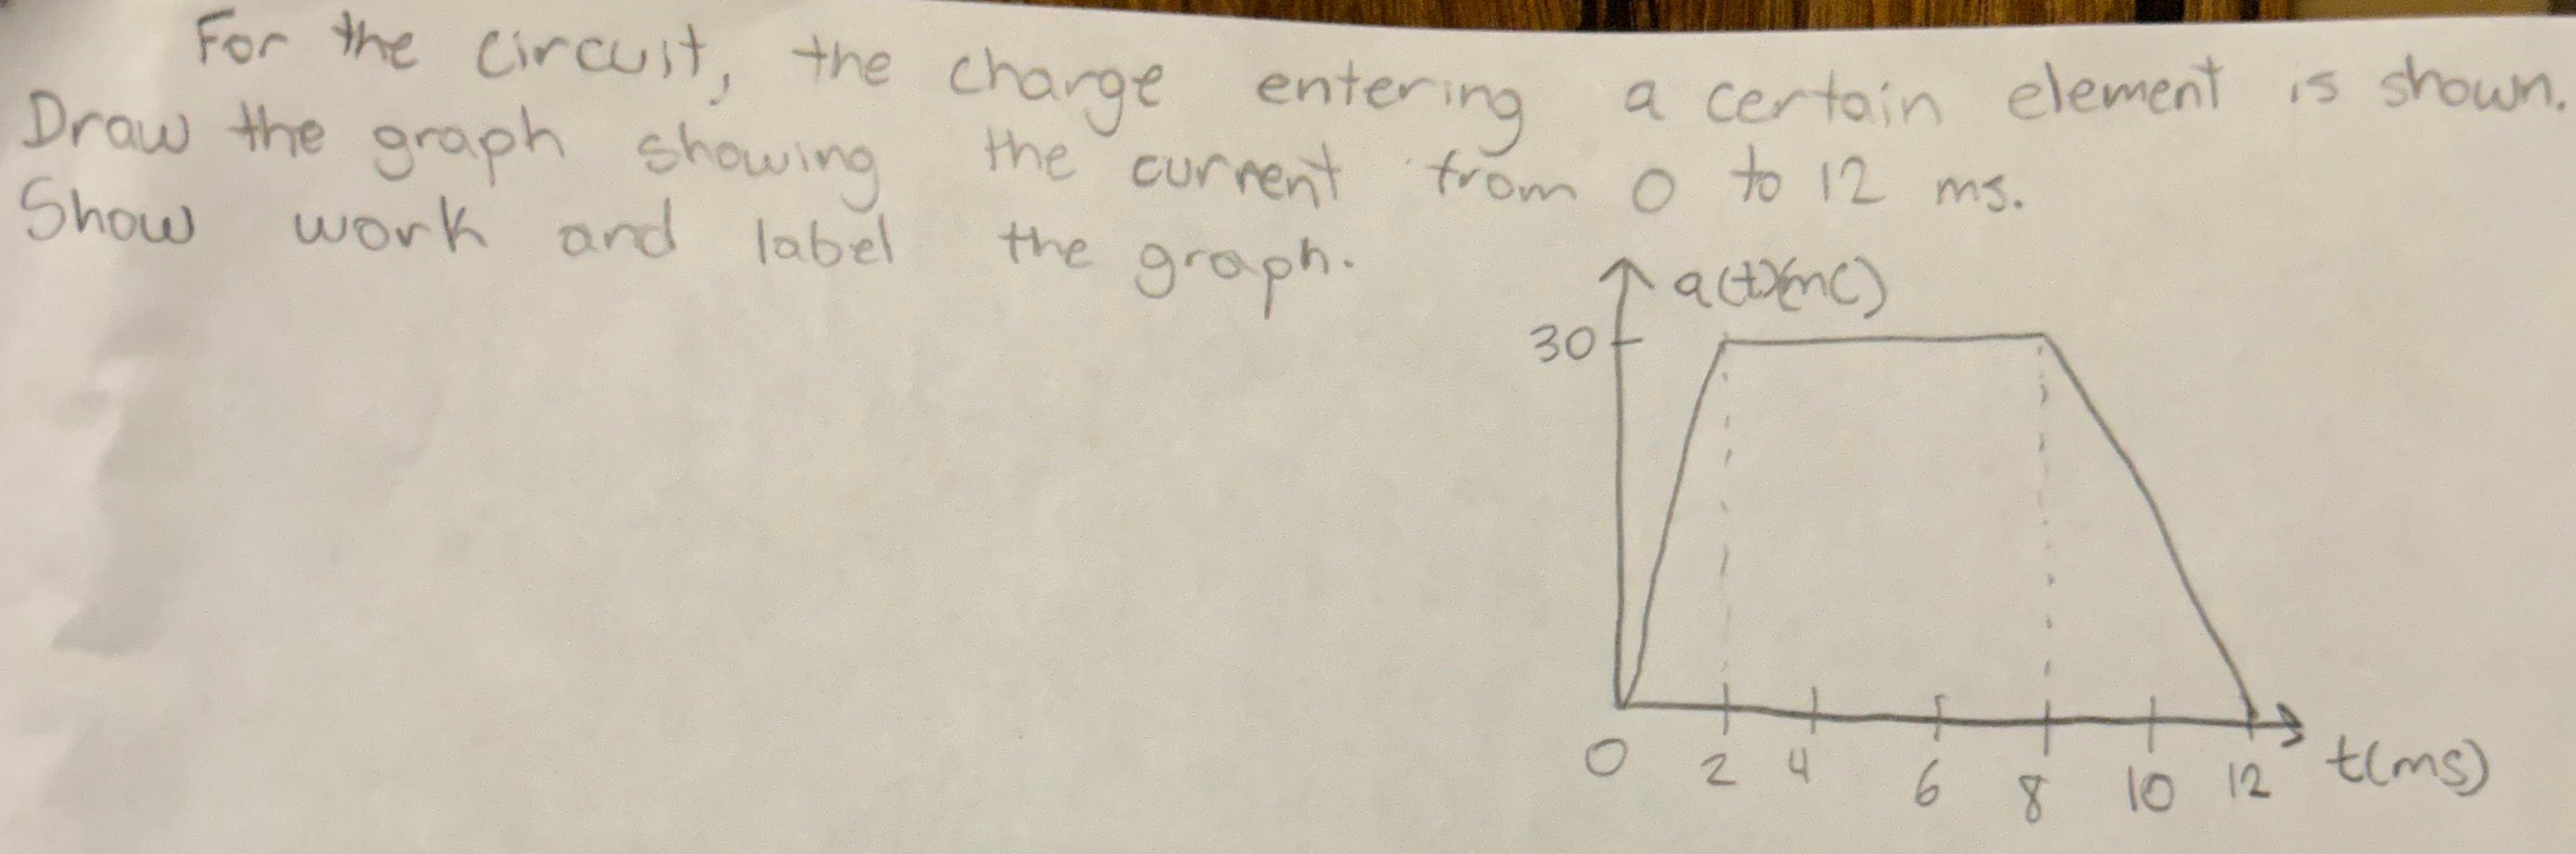 For the circuit, the charge entering a certain element is shown.
Draw the graph showing the current from 0 to 12 ms.
Show work and label the graph.
q(t)(mC)
30
0 2 4 6 8 10 12 t(ms)